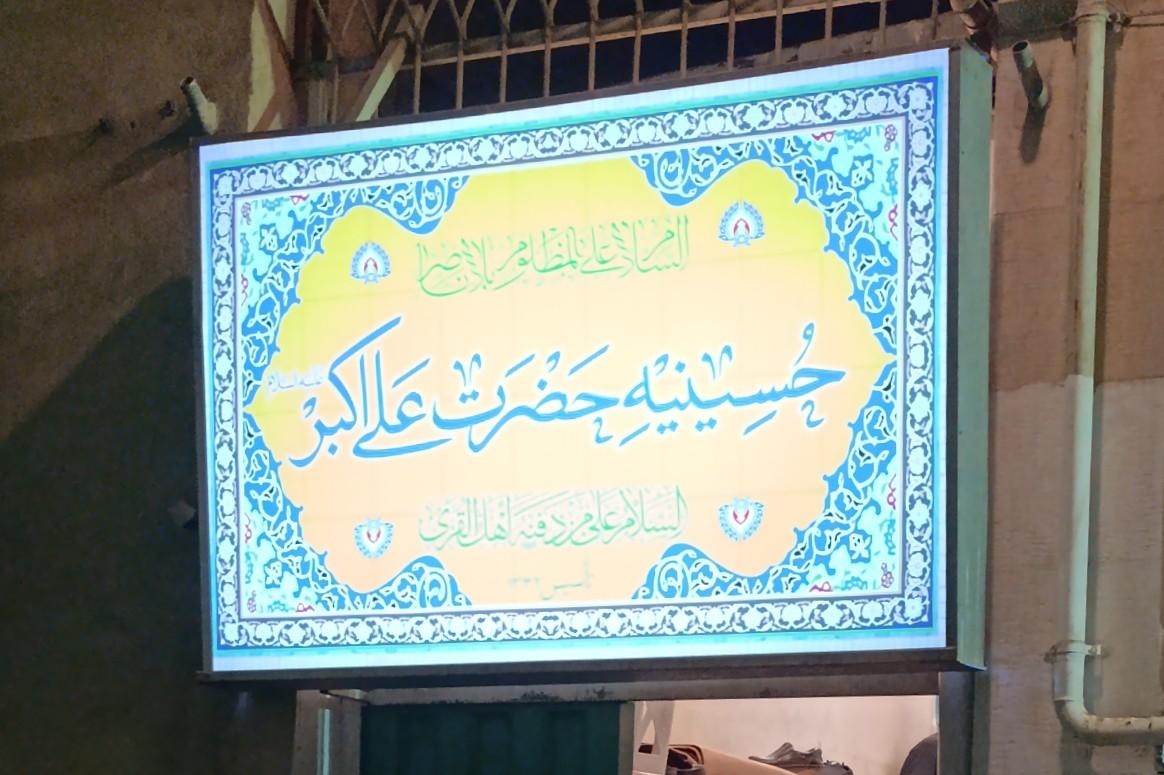 السلام علی المظلوم بلا ناصر
حُسِینیهِ حَضْرَت عَلی اکبر
علیه السلام
السَلام عَلی مَن دَفَنَهُ اَهل القُری
تأسیس ۱۳۳۶